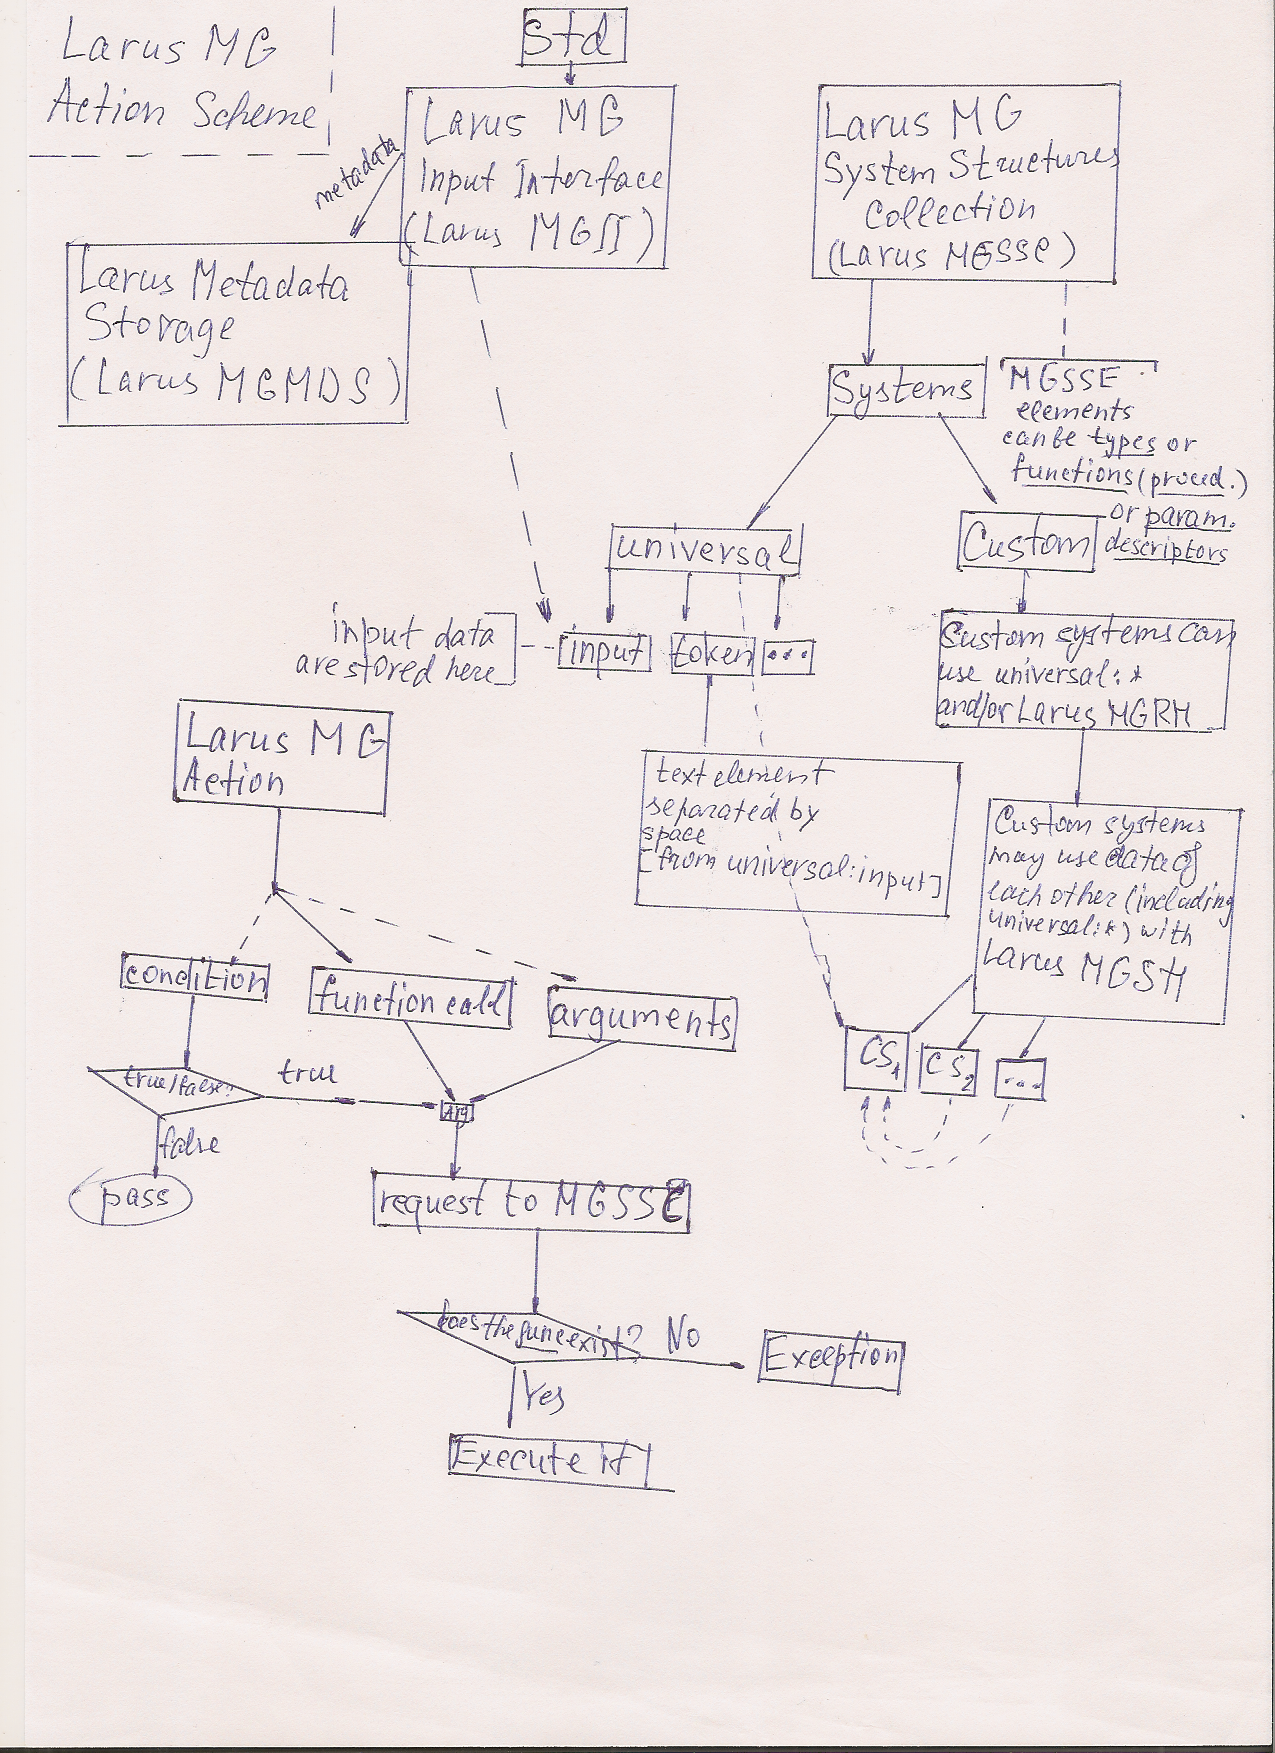 Larus MG
Action Scheme
Std
Larus MG
Input Interface
(Larus MGII)
metadata
Larus Metadata
Storage
(Larus MGMDS)
Larus MG
System Structures
Collection
(Larus MGSSC)
Systems
MGSSC
elements
can be types or
functions (proced.)
or param.
descriptors
universal
Custom
input data
are stored here
input
token
...
Custom systems can
use universal:*
and/or Larus MGRM
Larus MG
Action
text element
separated by
space
[from universal:input]
Custom systems
may use data of
each other (including
universal:*) with
Larus MGSH
condition
function call
arguments
CS1
CS2
...
true/false?
true
false
pass
request to MGSSC
does the func exist?
No
Exception
Yes
Execute it